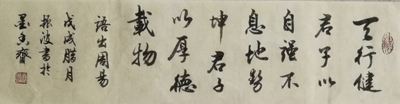 天行健
君子以
自强不
息地势
坤君子
以厚德
载物
语出周易
戊戌腊月
振波书于
墨香斋